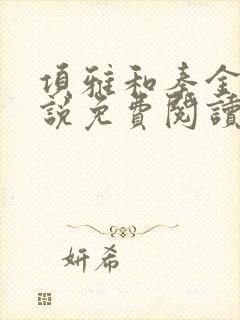 項雅和秦金
說免費閱讀
妍希